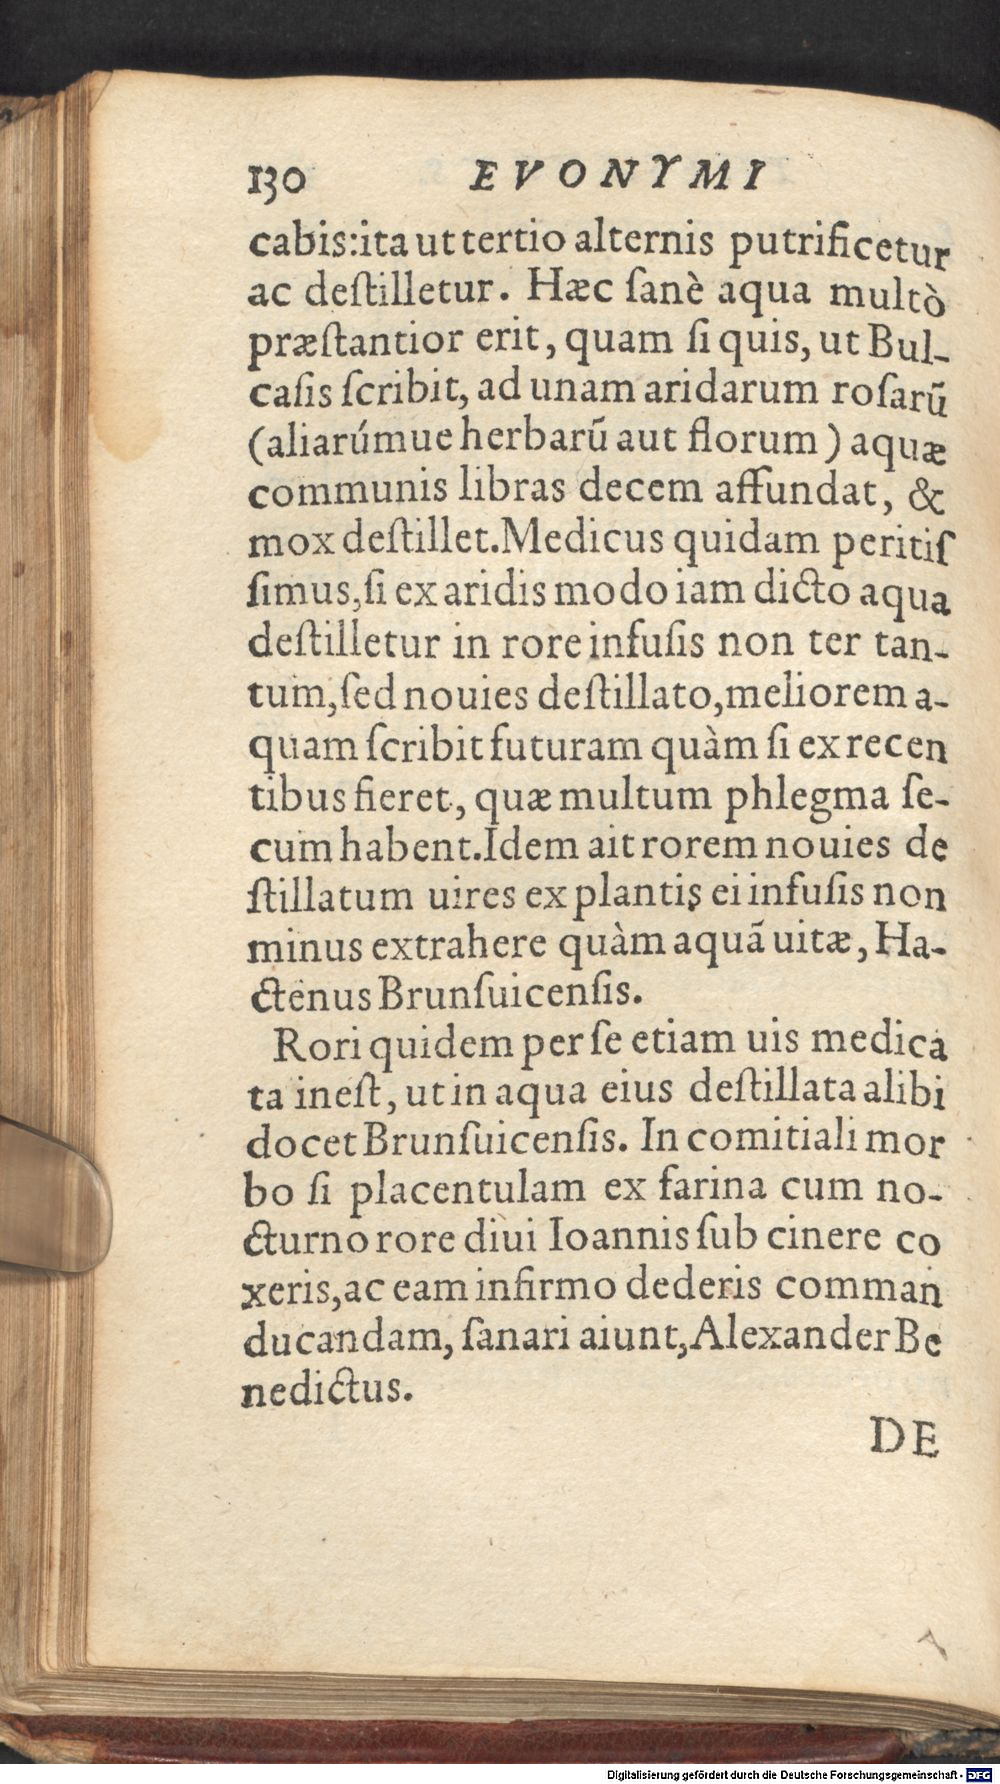 130 EVONYMI
cabis:ita ut tertio alternis putrificetur
ac deſtilletur. Hæc ſanè aqua multò
præſtantior erit, quam ſi quis, ut Bul-
caſis ſcribit, ad unam aridarum roſarũ
(aliarúmue herbarũ aut florum) aquæ
communis libras decem affundat, &
mox deſtillet. Medicus quidam peritiſ
ſimus, ſi ex aridis modo iam dicto aqua
deſtilletur in rore infuſis non ter tan-
tum, ſed nouies deſtillato, meliorem a-
quam ſcribit futuram quàm ſi ex recen
tibus fieret, quæ multum phlegma ſe-
cum habent. Idem ait rorem nouies de
ſtillatum uires ex plantis ei infuſis non
minus extrahere quàm aquã uitæ, Ha-
ctenus Brunſuicenſis.
Rori quidem per ſe etiam uis medica
ta ineſt, ut in aqua eius deſtillata alibi
docet Brunſuicenſis. In comitiali mor
bo ſi placentulam ex farina cum no-
cturno rore diui Ioannis ſub cinere co
xeris, ac eam infirmo dederis comman
ducandam, ſanari aiunt, Alexander Be
nedictus.
DE
Digitalisierung gefördert durch die Deutsche Forschungsgemeinschaft - DFG